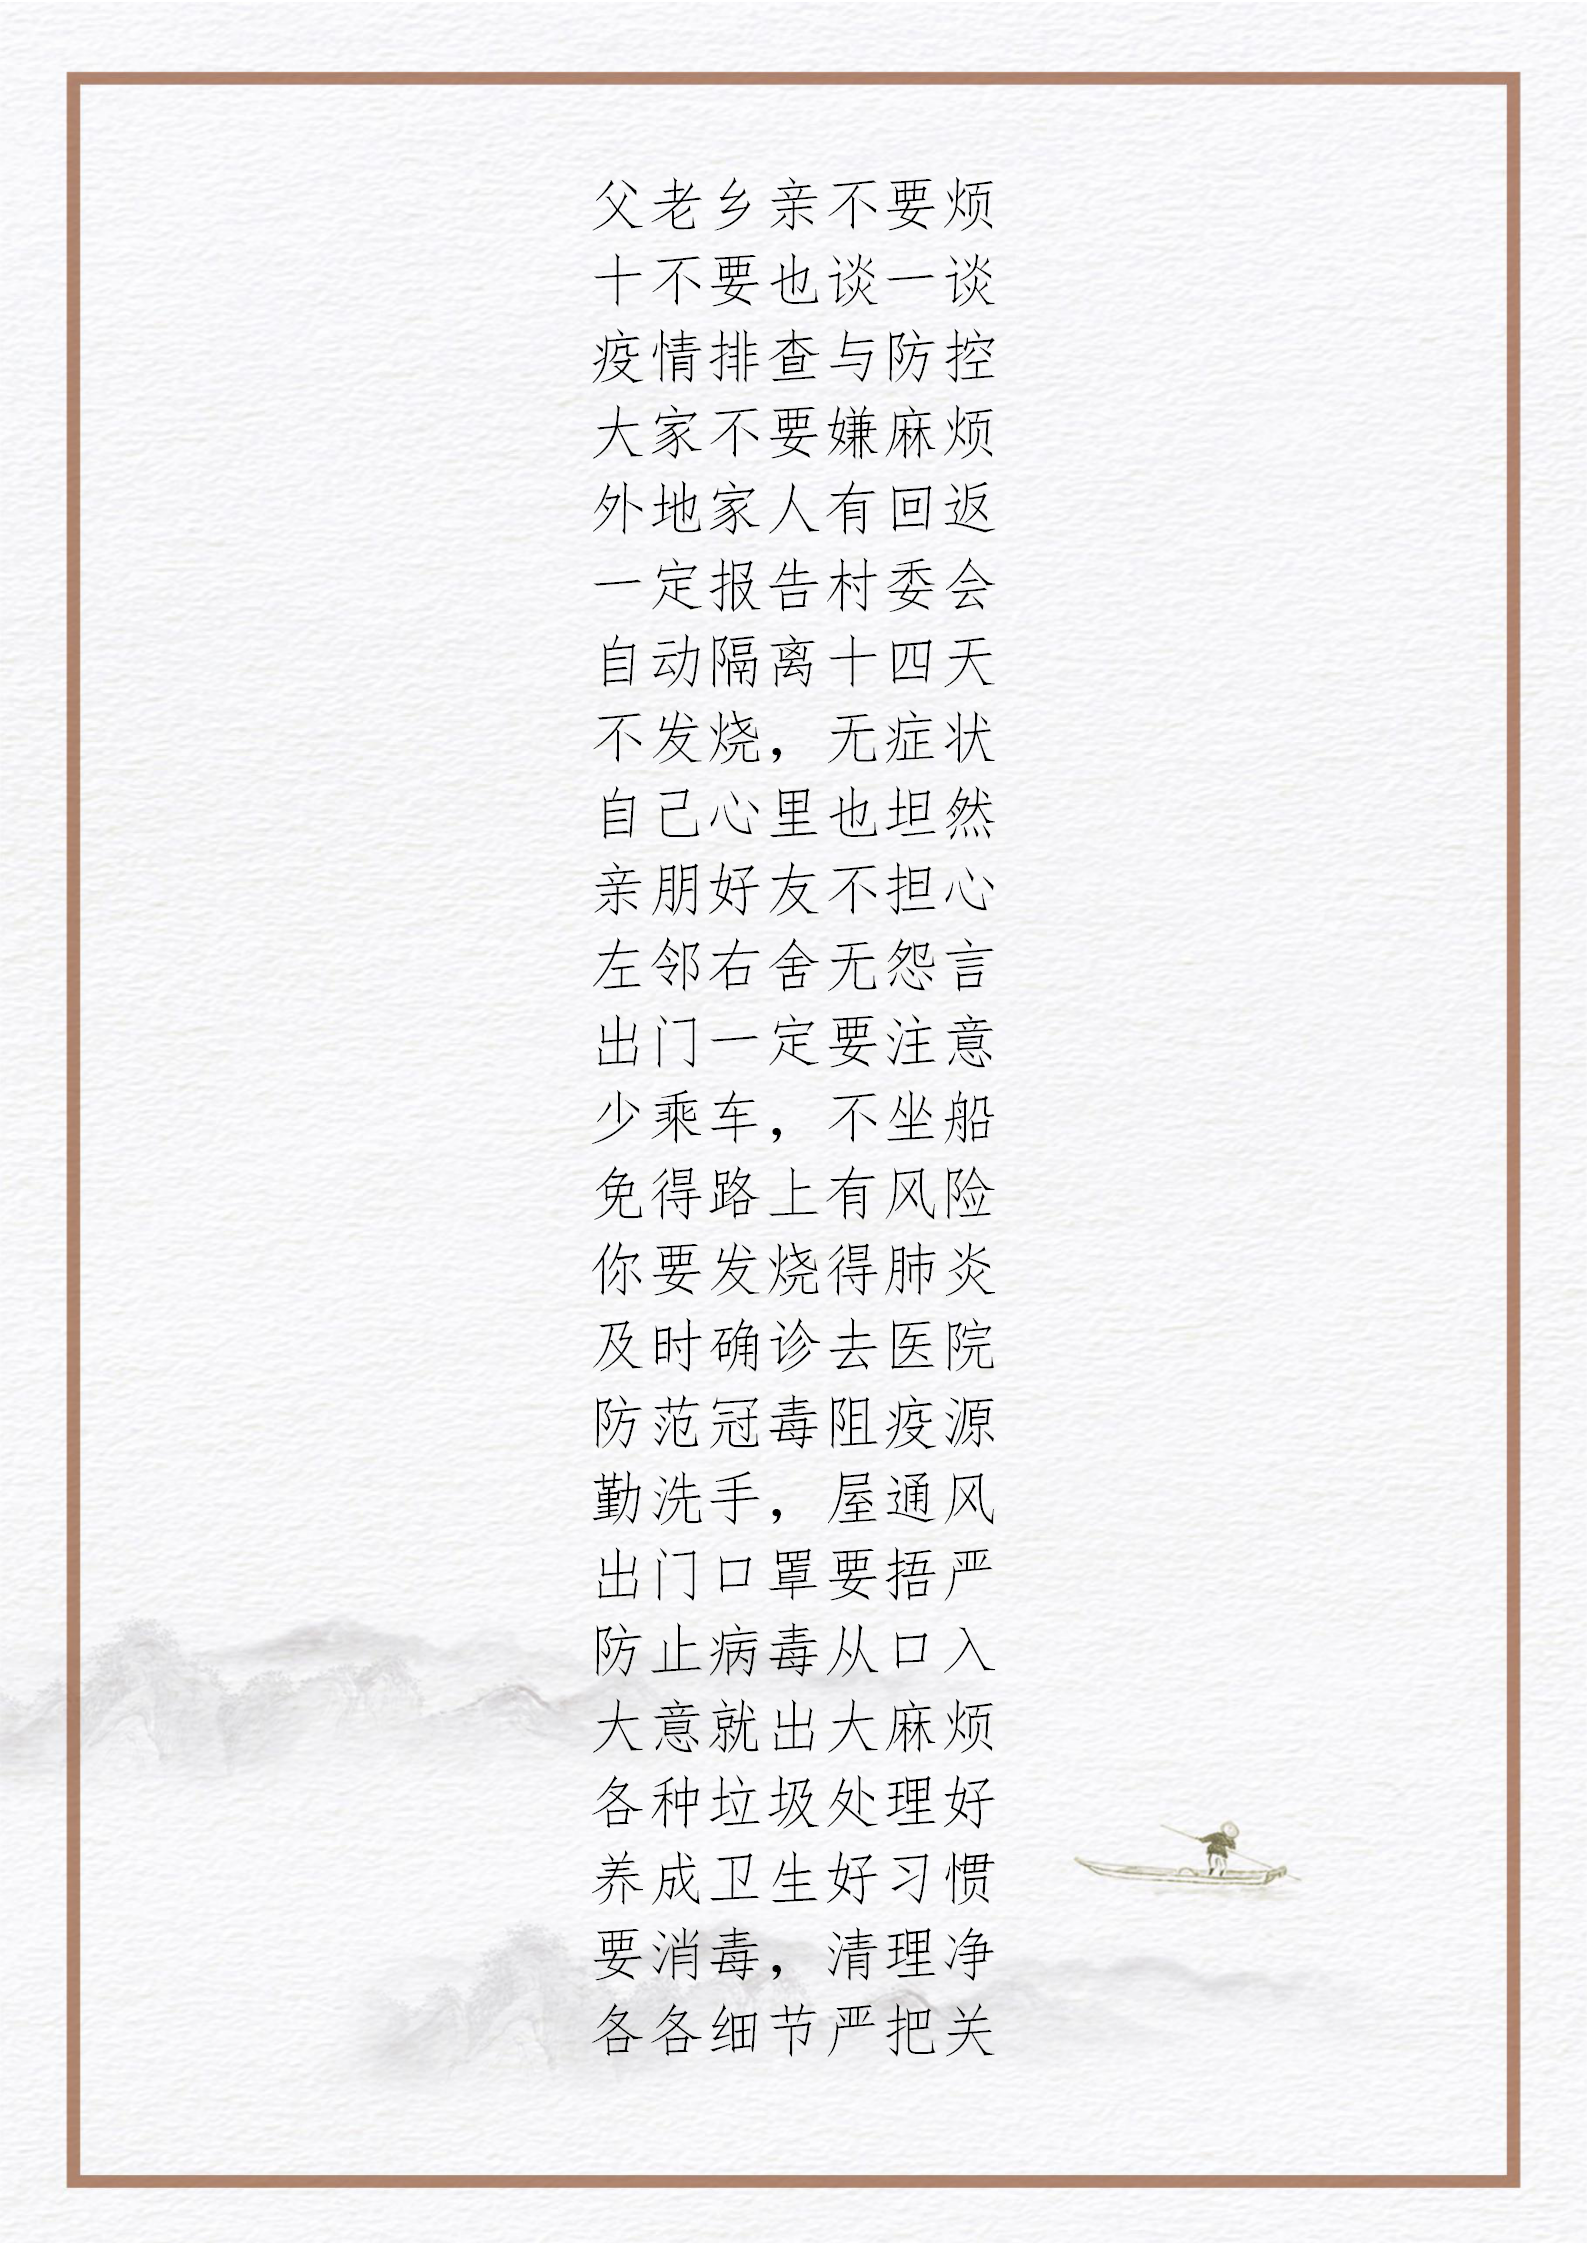 父老乡亲不要烦
十不要也谈一谈
疫情排查与防控
大家不要嫌麻烦
外地家人有回返
一定报告村委会
自动隔离十四天
不发烧，无症状
自己心里也坦然
亲朋好友不担心
左邻右舍无怨言
出门一定要注意
少乘车，不坐船
免得路上有风险
你要发烧得肺炎
及时确诊去医院
防范冠毒阻疫源
勤洗手，屋通风
出门口罩要捂严
防止病毒从口入
大意就出大麻烦
各种垃圾处理好
养成卫生好习惯
要消毒，清理净
各各细节严把关